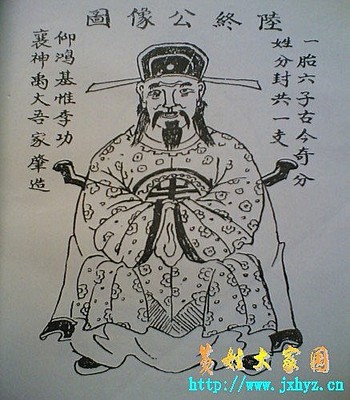 陸終公像圖
一胎六子古今奇分
姓分封共一支
仰鴻基惟季功
襄神禹大吾家肇造
黄姓大家园
http://www.jxhyz.cn